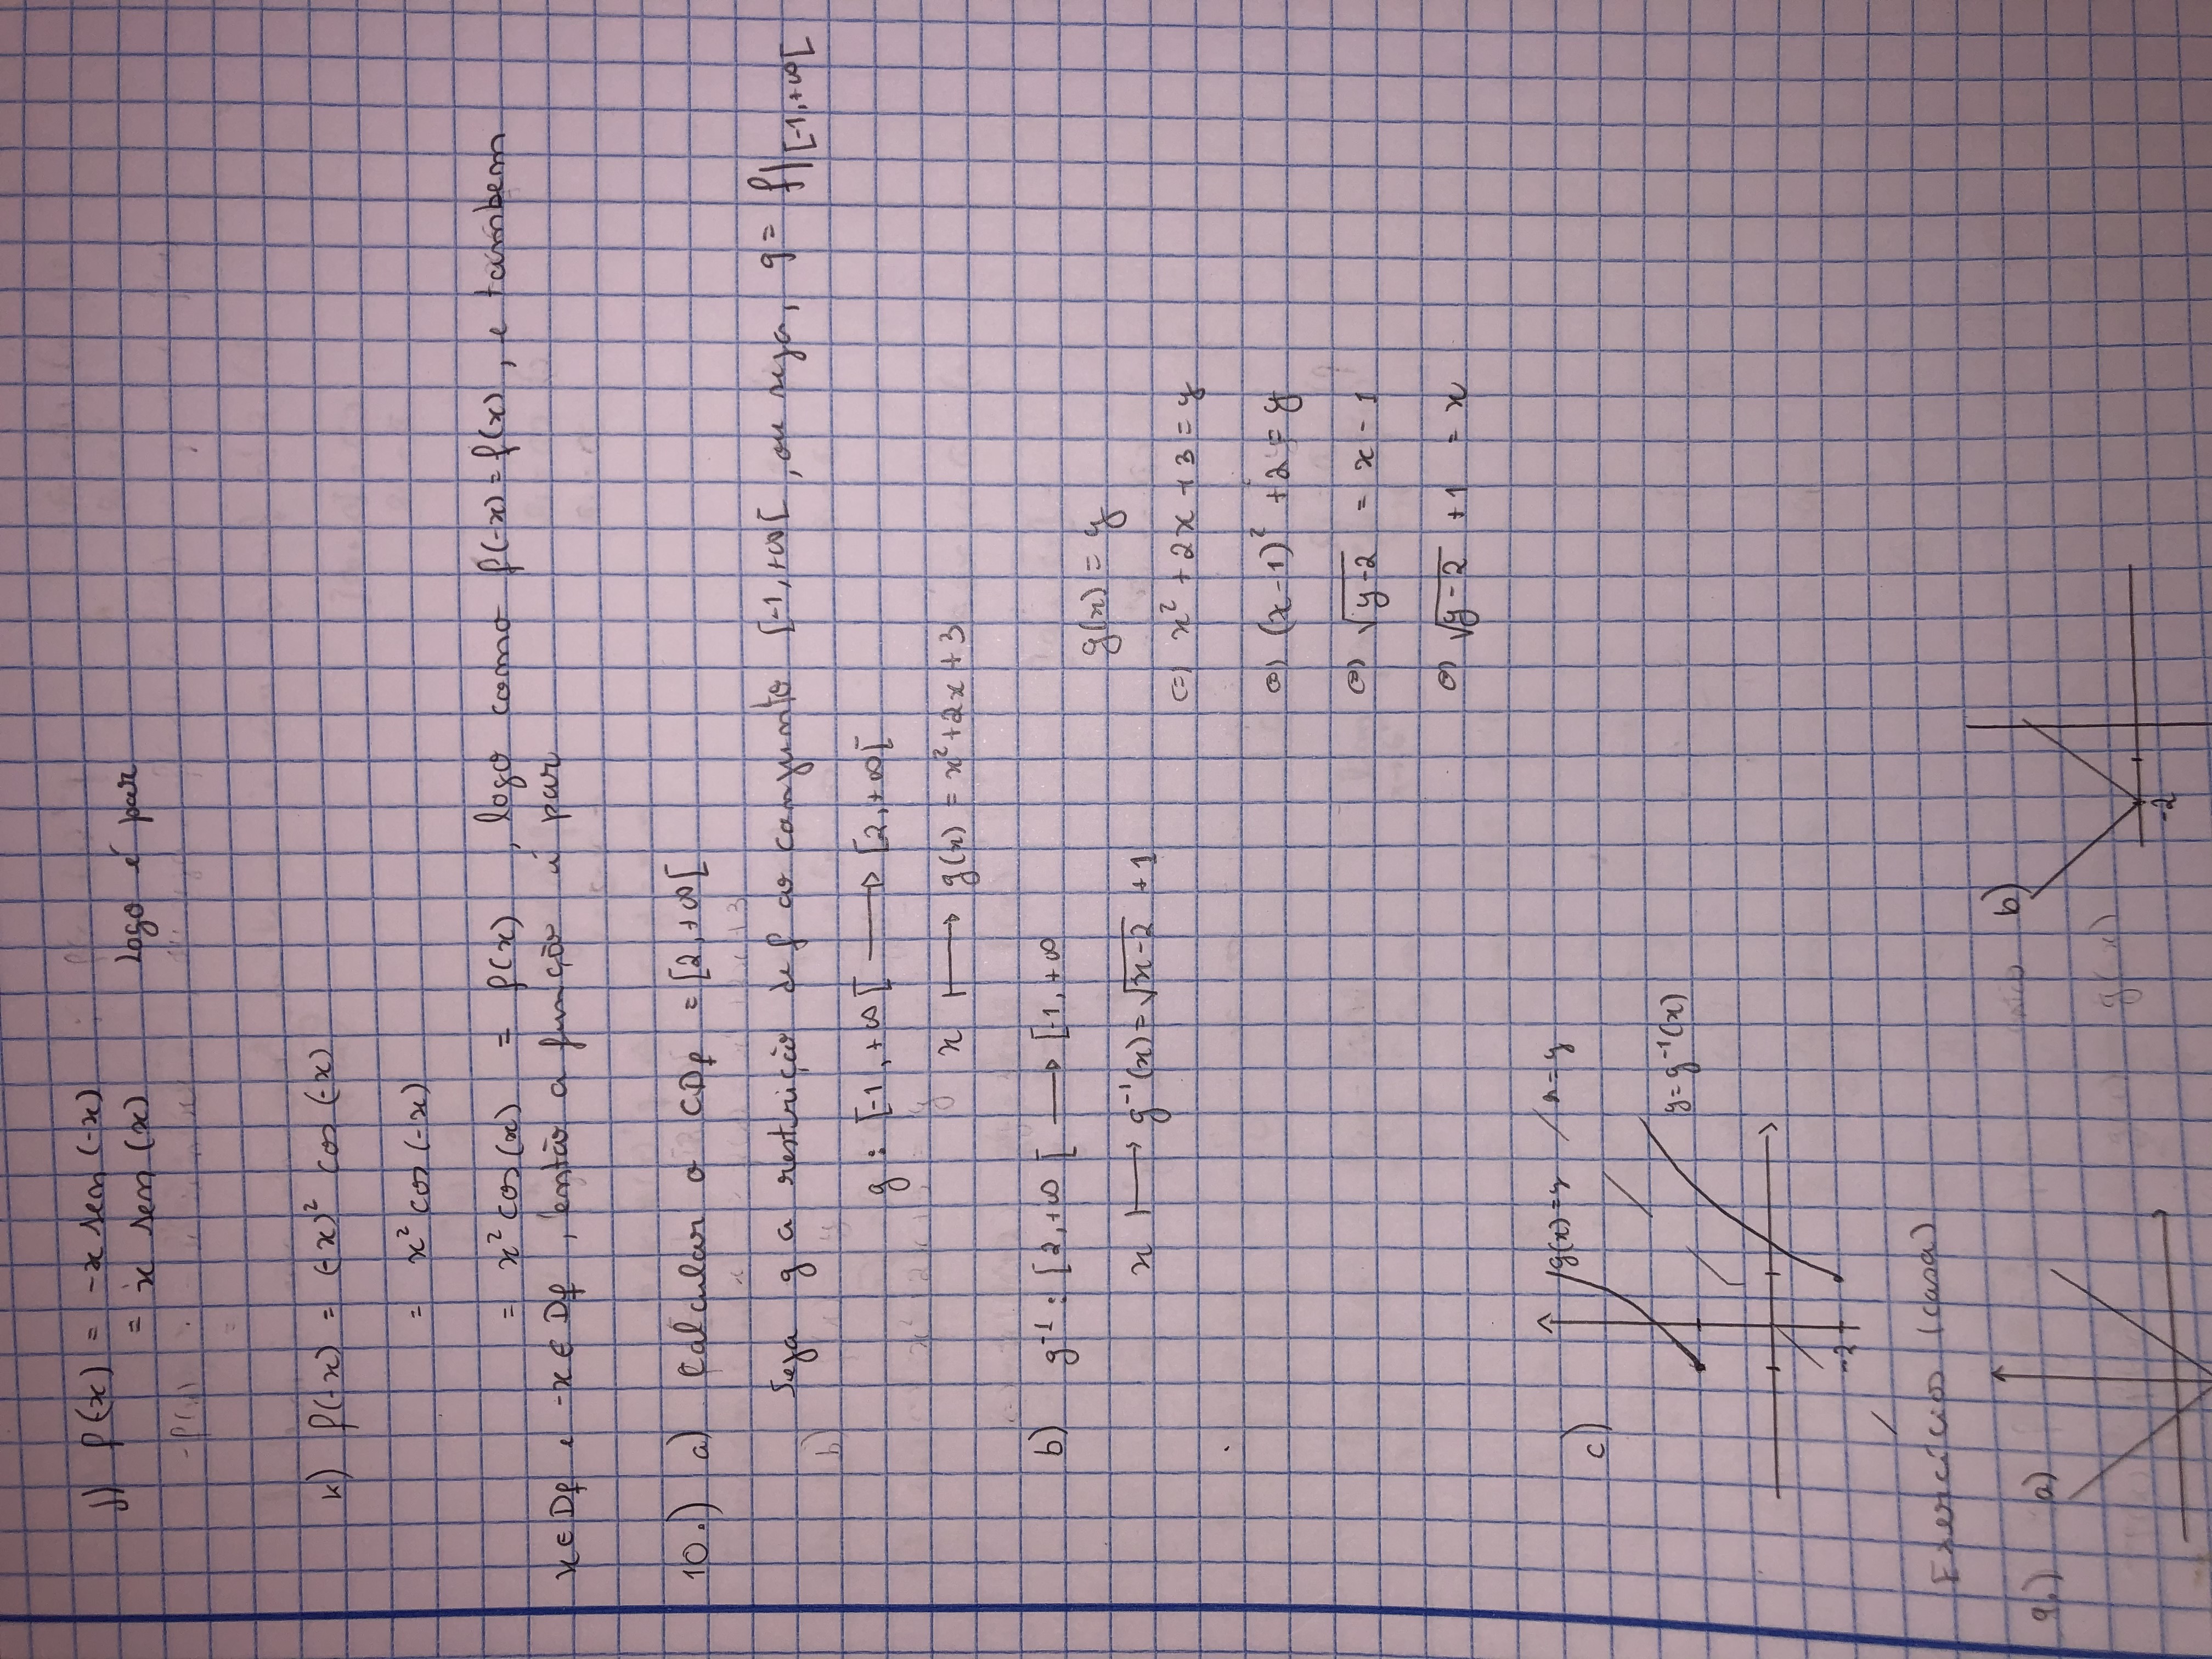 j) f(-x) = -x sen(-x)
= x sen(x) Logo é par
-f(x)
=
k) f(-x) = (-x)² cos(-x)
= x² cos(-x)
= x² cos(x) = f(x) , logo como f(-x) = f(x) , e tambem
x ∈ Df e -x ∈ Df , então a função é par
10.) a) Calcular o CDf = [2, +∞[
Seja g a restrição de f ao conjunto [-1, +∞[ , ou seja, g = f|[-1, +∞[
b)
g : [-1, +∞[ → [2, +∞[
x ↦ g(x) = x² + 2x + 3
b) g⁻¹ : [2, +∞[ → [-1, +∞
x ↦ g⁻¹(x) = √(x-2) + 1
g(x) = y
(=) x² + 2x + 3 = y
(=) (x-1)² + 2 = y
(=) √(y-2) = x - 1
(=) √(y-2) + 1 = x
c) g(x) = y x = y
y = g⁻¹(x)
-2
Exercícios (casa)
9.) a) b)
g(-x)
-2